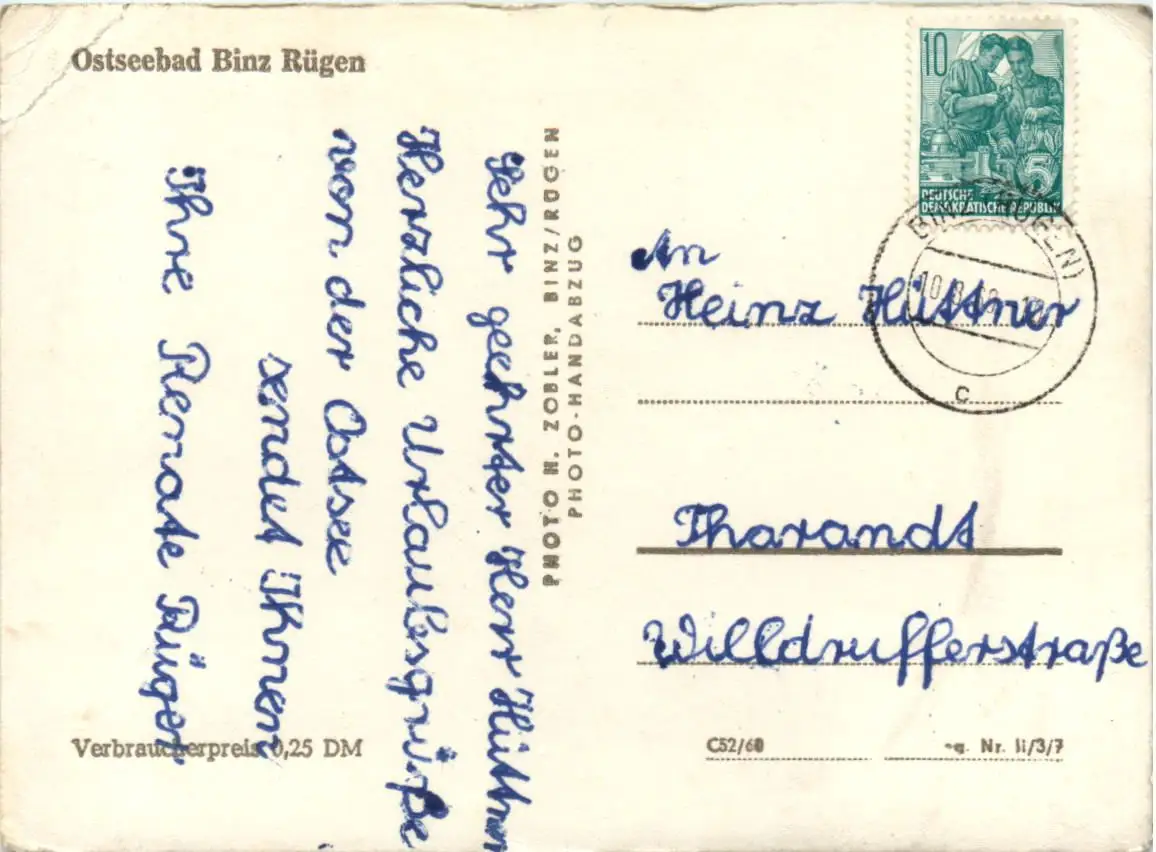 Ostseebad Binz Rügen
Sehr geehrter Herr Hüttner
Herzliche Urlaubsgrüße
von der Ostsee
sendet Ihnen
Ihre Renate Rüger
Verbraucherpreis 0,25 DM
PHOTO H. ZOBLER, BINZ/RÜGEN
PHOTO-HANDABZUG
10
5
DEUTSCHE
DEMOKRATISCHE REPUBLIK
BINZ (RÜGEN)
c
An
Heinz Hüttner
Tharandt
Willdrufferstraße
C52/60
Nr. Ii/3/7